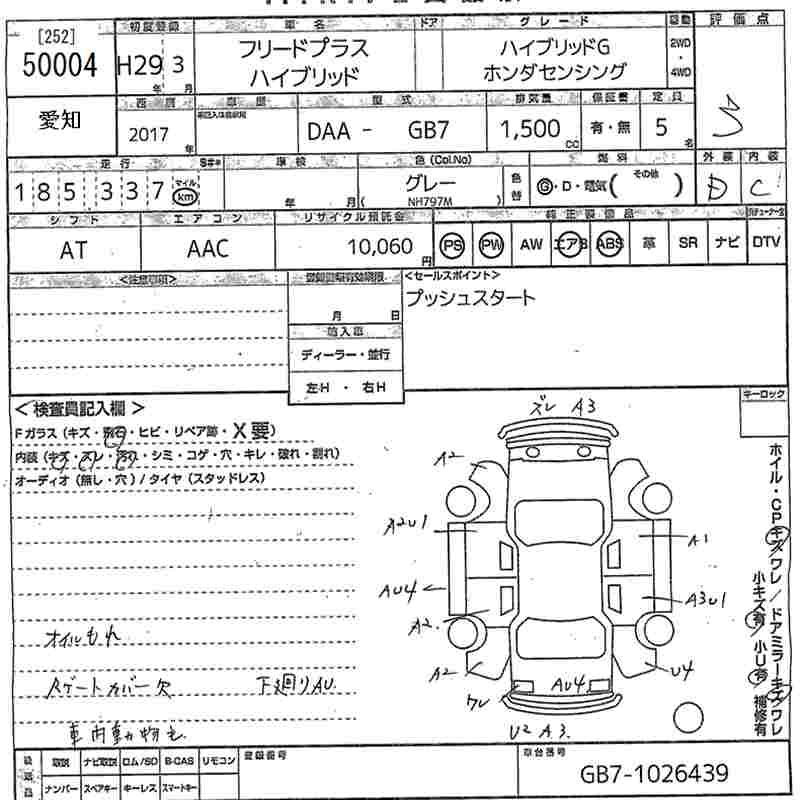 [252]
50004
初度登録
H29 3
年 月
車名
フリードプラス
ハイブリッド
ドア
グレード
ハイブリッドG
ホンダセンシング
駆動
2WD
・
4WD
評価点
愛知
西暦
2017
年
車歴
型式
DAA - GB7
排気量
1,500
CC
保証書
有・無
定員
5
名
走行
185,337
マイル
km
車検
年 月
色 (Col.No)
グレー
( NH797M )
色替
燃料
G・D・電気 ( その他 )
外装
D
内装
C
シフト
AT
エアコン
AAC
リサイクル預託金
10,060
円
純正装備品
PS PW AW エアB ABS 革 SR ナビ DTV
<注意事項>
月 日
輸入車
ディーラー・並行
左H ・ 右H
<セールスポイント>
プッシュスタート
キーロック
＜検査員記入欄＞
Fガラス (キズ・飛石・ヒビ・リペア跡・X要)
内装 (キズ・スレ・汚れ・シミ・コゲ・穴・キレ・破れ・割れ)
オーディオ (無し・穴) / タイヤ (スタッドレス)
オイルもれ
スゲートカバー欠
下廻りAU.
車内動物毛
ズレ A3
A2
A2U1
A1
AU4
A3U1
A2.
A2
U4
ワレ
AU4
U2 A3.
ホイル・CPキズ/ワレ / ドアミラーキズ/ワレ
小キズ有 / 小U有 / 補修有
後送品
取説 ナビ取説 ロム/SD B-CAS リモコン
ナンバー スペアキー キーレス スマートキー
登録番号
車台番号
GB7-1026439